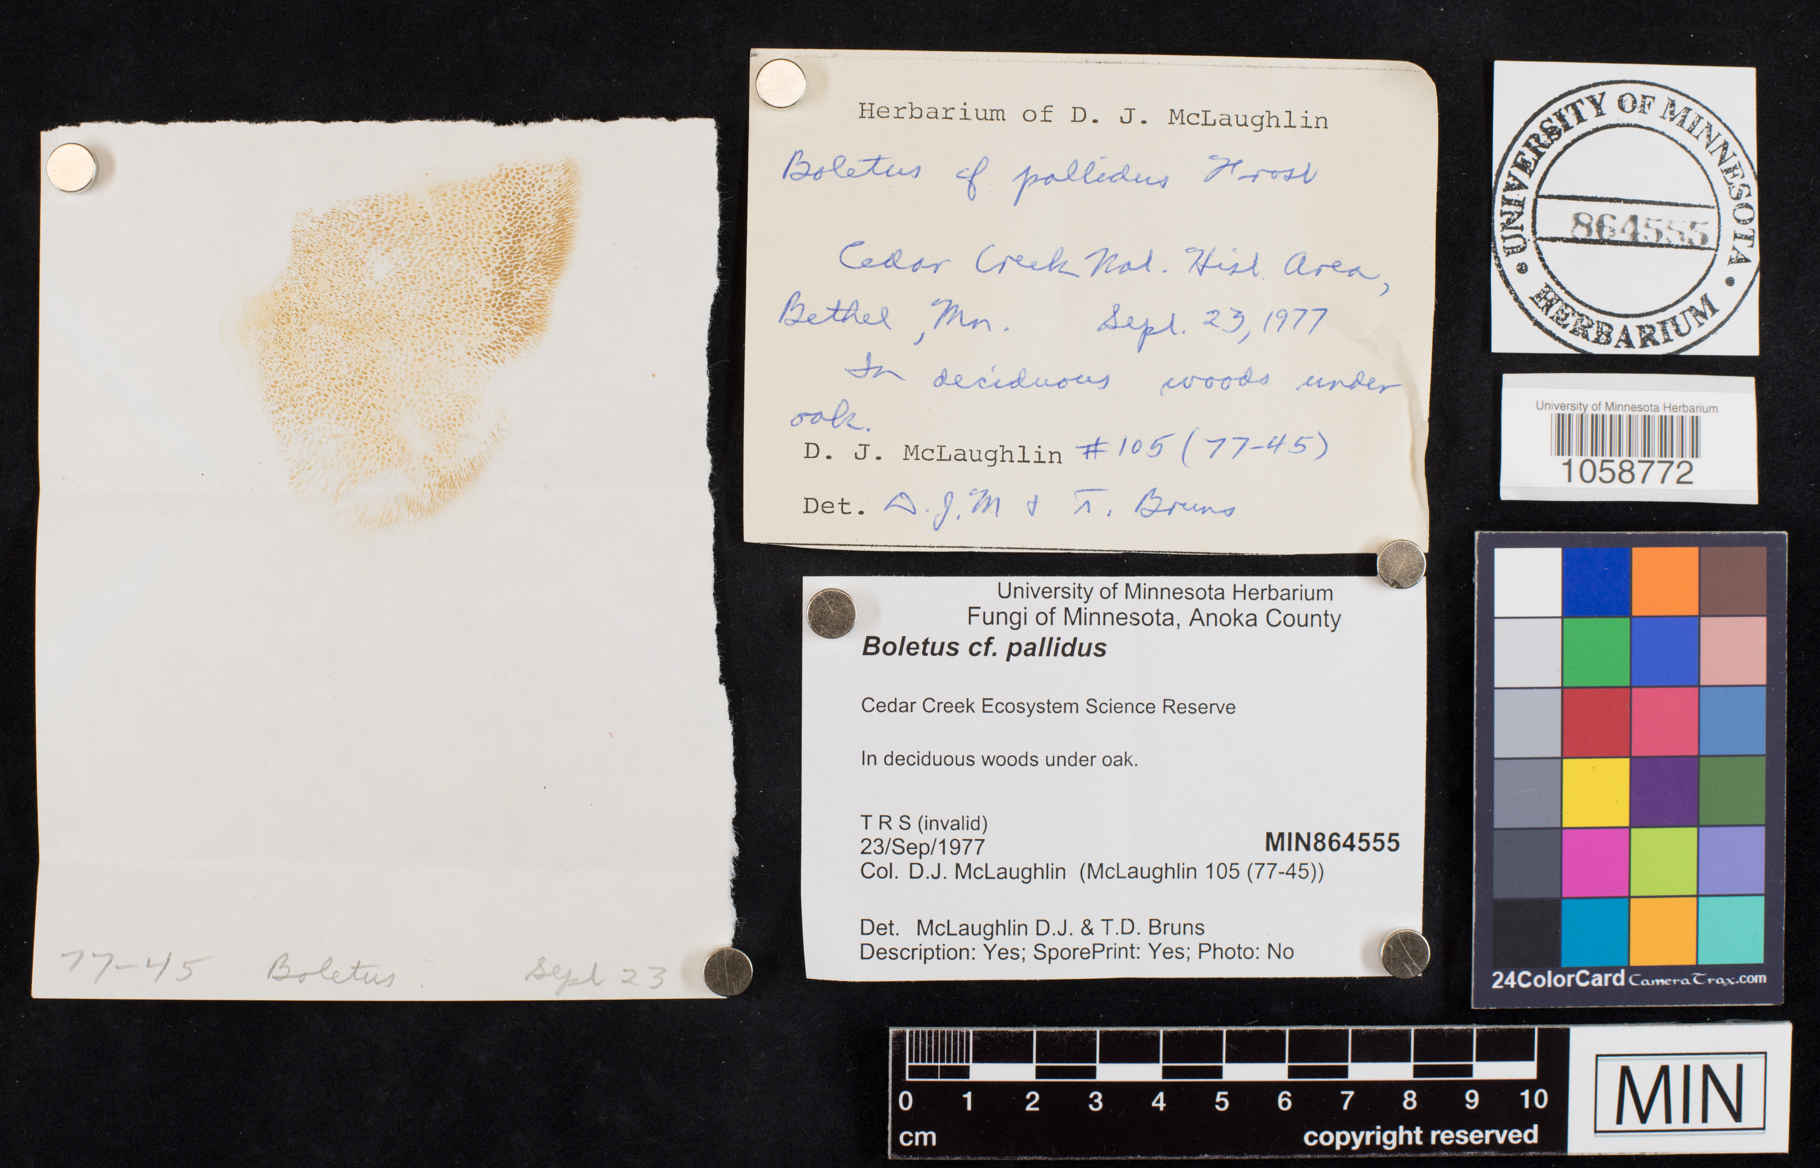 77-45 Boletus. Sept 23
Herbarium of D. J. McLaughlin
Boletus cf pallidus Frost
Cedar Creek Nat. Hist. Area,
Bethel, Mn. Sept. 23, 1977
In deciduous woods under
oak.
D. J. McLaughlin #105 (77-45)
Det. D.J.M & T. Bruns
University of Minnesota Herbarium
Fungi of Minnesota, Anoka County
Boletus cf. pallidus
Cedar Creek Ecosystem Science Reserve
In deciduous woods under oak.
T R S (invalid)
23/Sep/1977
MIN864555
Col. D.J. McLaughlin (McLaughlin 105 (77-45))
Det. McLaughlin D.J. & T.D. Bruns
Description: Yes; SporePrint: Yes; Photo: No
• UNIVERSITY OF MINNESOTA •
864555
HERBARIUM
University of Minnesota Herbarium
1058772
24ColorCard CameraTrax.com
0 1 2 3 4 5 6 7 8 9 10
cm copyright reserved
MIN